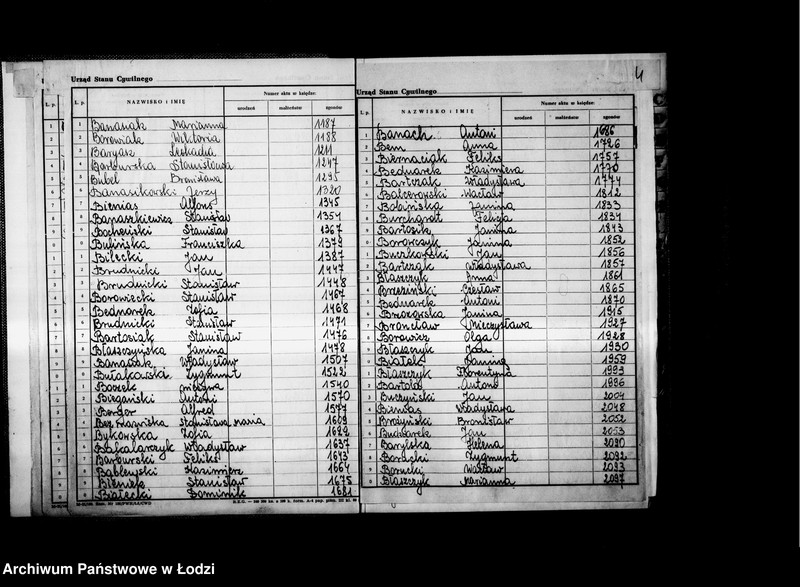 4
Urząd Stanu Cywilnego
L. p.
NAZWISKO i IMIĘ
Numer aktu w księdze:
urodzeń małżeństw zgonów
1 Banasiak Marianna 1187
2 Borowiała Wiktoria 1188
3 Baryasz Leokadia 1211
4 Barburska Stanisława 1247
5 Bubel Bronisława 1295
6 Banasikowski Jerzy 1320
7 Bienias Alfons 1345
8 Banaszkiewicz Stanisław 1354
9 Bocheński Stanisław 1367
0 Bulińska Franciszka 1379
1 Bilecki Jan 1387
2 Brudnicki Jan 1447
3 Brudnicki Stanisław 1448
4 Borowiecki Stanisław 1467
5 Bednarek Zofia 1468
6 Brudnicki Stanisław 1471
7 Bartosiak Stanisław 1476
8 Błaszczyńska Janina 1478
9 Banasiak Władysław 1507
0 Bułakowski Zygmunt 1522
1 Bączek 1540
2 Biegański Antoni 1570
3 Berger Alfred 1577
4 Stanisława Maria 1609
5 Bykowska Zofia 1629
6 Bakalarczyk Władysław 1637
7 Barburski Feliks 1643
8 Kazimierz 1664
9 Bieniek Stanisław 1675
0 Białecki Dominik 1681
Urząd Stanu Cywilnego
L. p.
NAZWISKO i IMIĘ
Numer aktu w księdze:
urodzeń małżeństw zgonów
1 Banach Antoni 1686
2 Bem Anna 1726
3 Biernaciak Feliks 1757
4 Bednarek Kazimiera 1770
5 Bartczak Władysława 1774
6 Balcerowski Wacław 1812
7 Janina 1833
8 Burchardt Felicja 1834
9 Bartosik Janina 1843
0 Borowczyk Janina 1852
1 Buczkowski Jan 1856
2 Bartczak Władysława 1857
3 Błaszczyk Irma 1861
4 Brzeziński Czesław 1865
5 Bednarek Antoni 1870
6 Brzozowska Janina 1915
7 Broncław Mieczysława 1927
8 Borowicz Olga 1928
9 Błaszczyk Jan 1930
0 Białek Janina 1959
1 Błaszczyk Florentyna 1993
2 Bartola Antoni 1996
3 Buczyński Jan 2004
4 Bienias Władysława 2048
5 Bronisław 2052
6 Bednarek Jan 2053
7 Baryalska Helena 2090
8 Zygmunt 2092
9 Borucki Wacław 2093
0 Błaszczyk Marianna 2097
Archiwum Państwowe w Łodzi